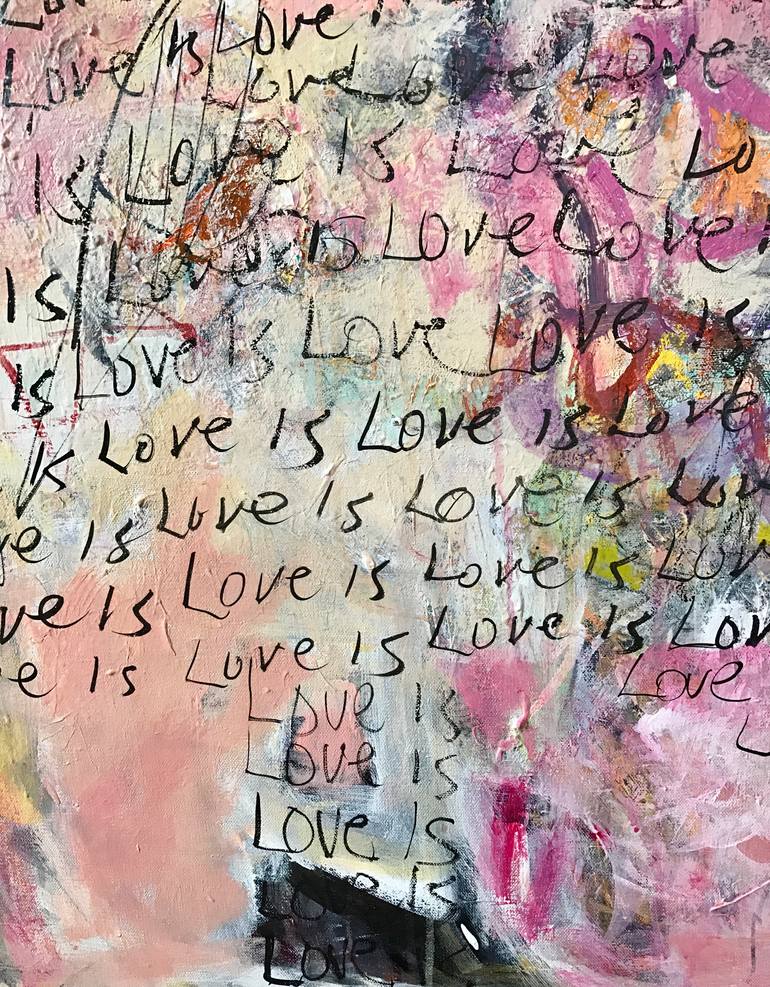 Is Love
Love Love Love Love
Is Love Is Love Lo
Love Is Love Love
Is
Love Is Love Love Is
Is
Is Love Is Love Is Love
ve Is Love Is Love Is Lov
ve Is Love Is Love Is Lov
e Is Love Is Love Is Lov
Love
Love Is
Love Is
Love Is
Love Is
Love